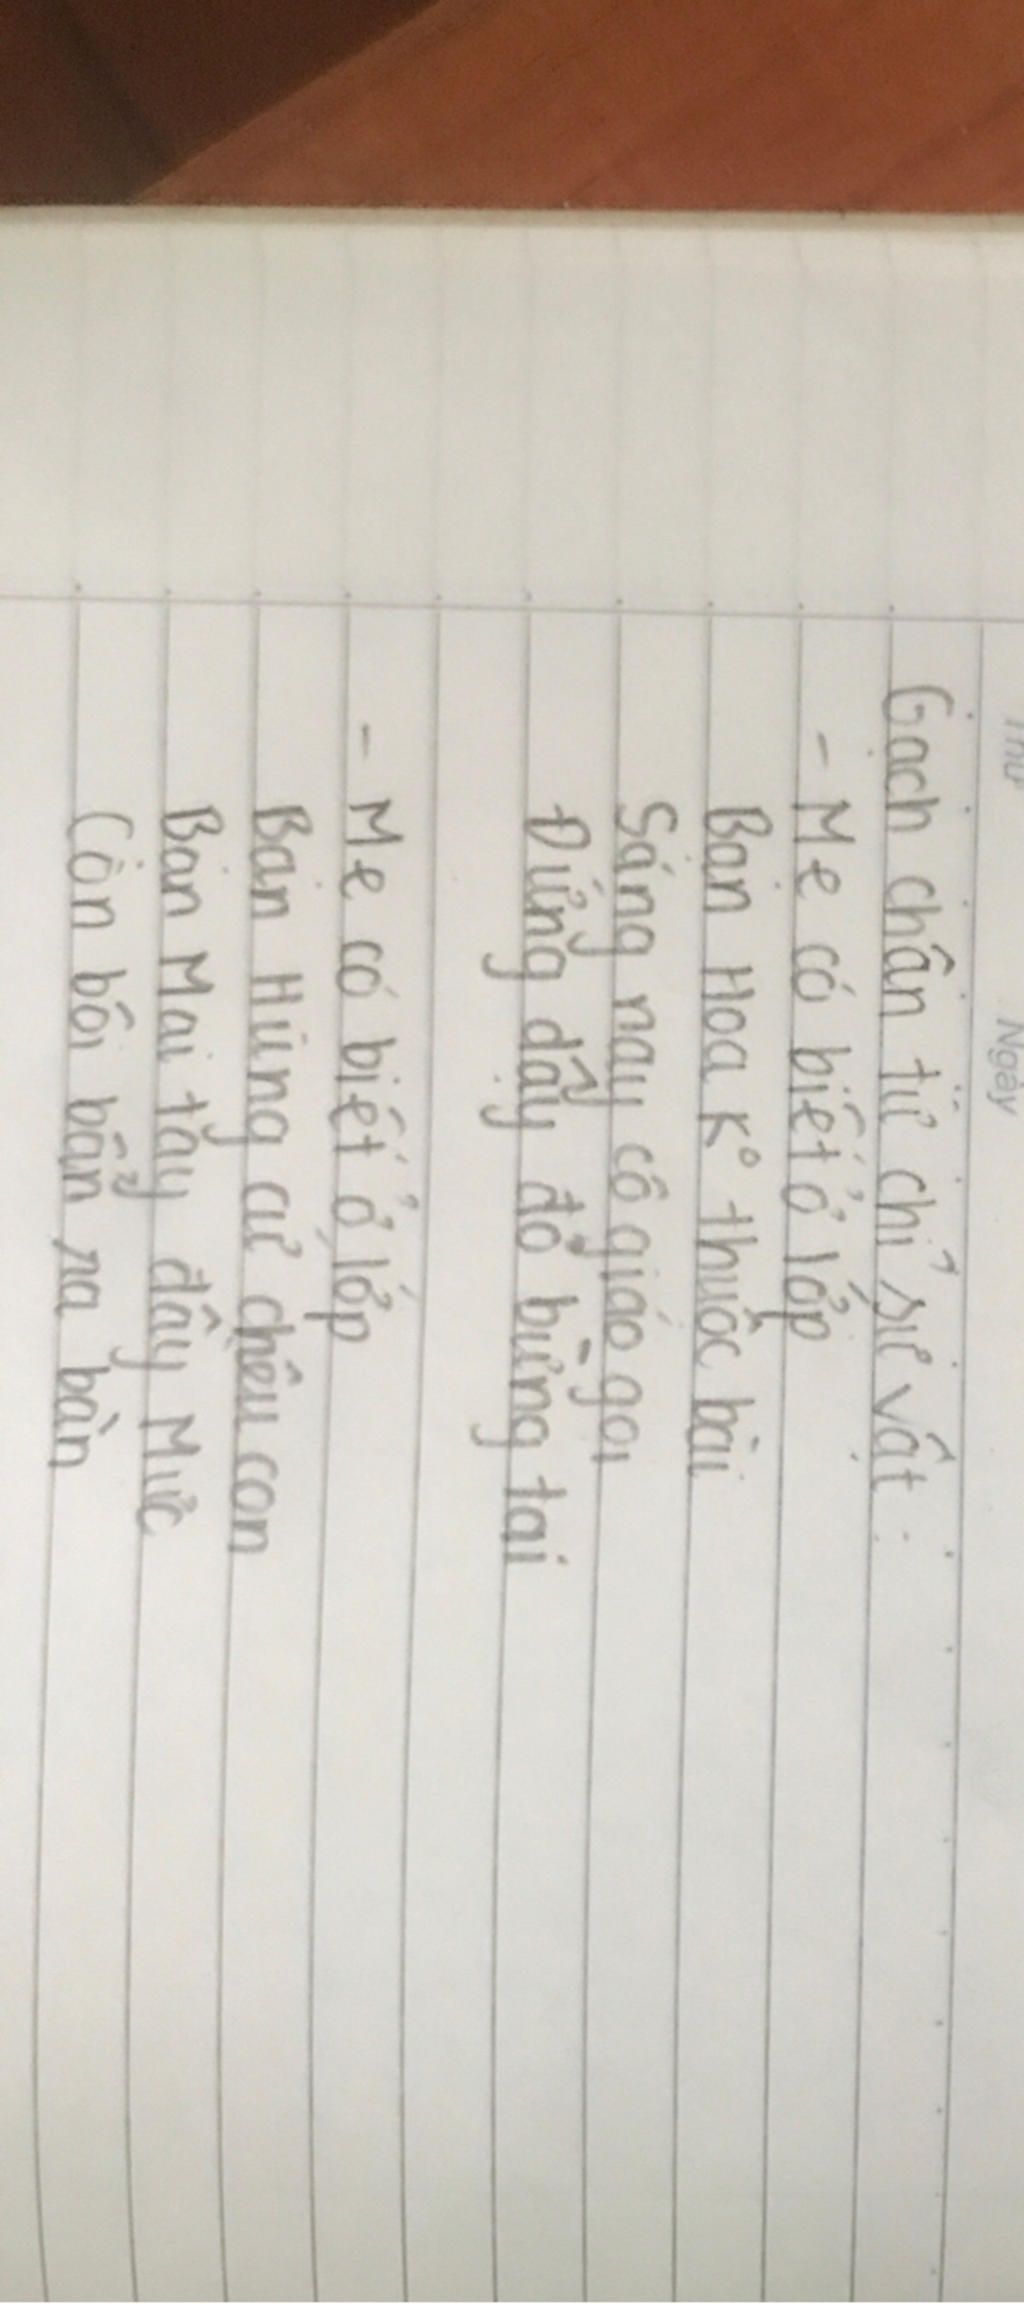 Thứ Ngày
Gạch chân từ chỉ sự vật:
- Mẹ có biết ở lớp
Bạn Hoa K° thuộc bài
Sáng nay cô giáo gọi
Đứng dậy đỏ bừng tai
- Mẹ có biết ở lớp
Bạn Hùng cứ chêu con
Bạn Mai tay đầy Mực
Còn bôi bẩn ra bàn